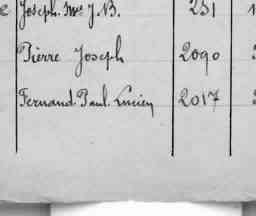 Joseph. Mce J.B. 231
Pierre Joseph 2090
Fernand. Paul. Lucien 2017